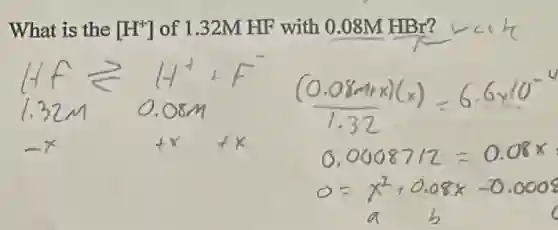 What is the [H⁺] of 1.32M HF with 0.08M HBr?
HF ⇌ H⁺ + F⁻
1.32M 0.08M
-x +x +x
(0.08M+x)(x) / 1.32 = 6.6x10⁻⁴
0.0008712 = 0.08x
0 = x² + 0.08x - 0.0008
a b